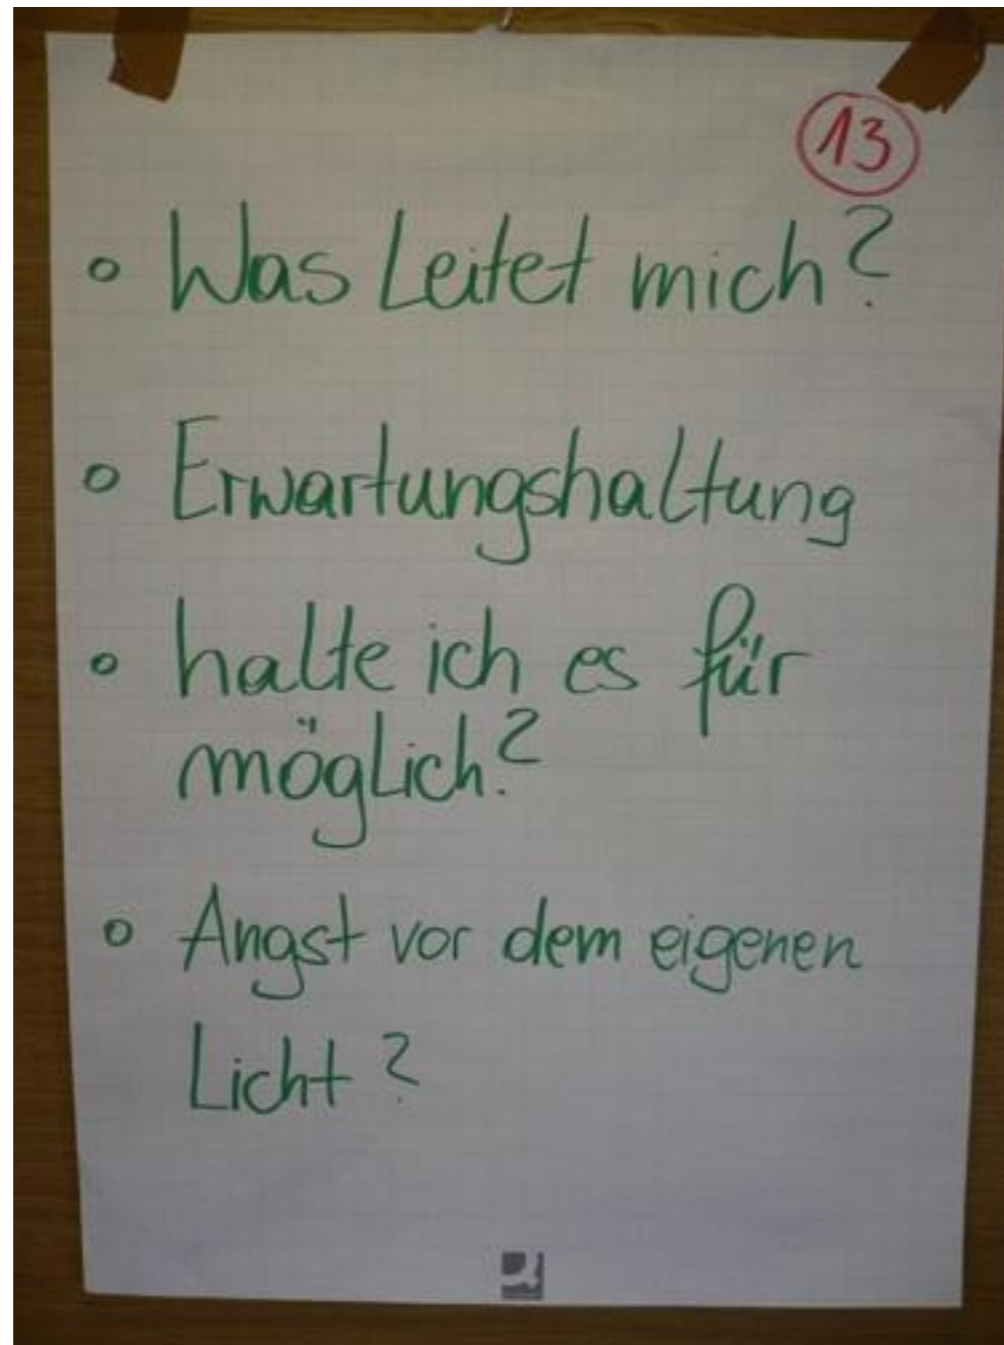 13
• Was Leitet mich?
• Erwartungshaltung
• halte ich es für
möglich?
• Angst vor dem eigenen
Licht?